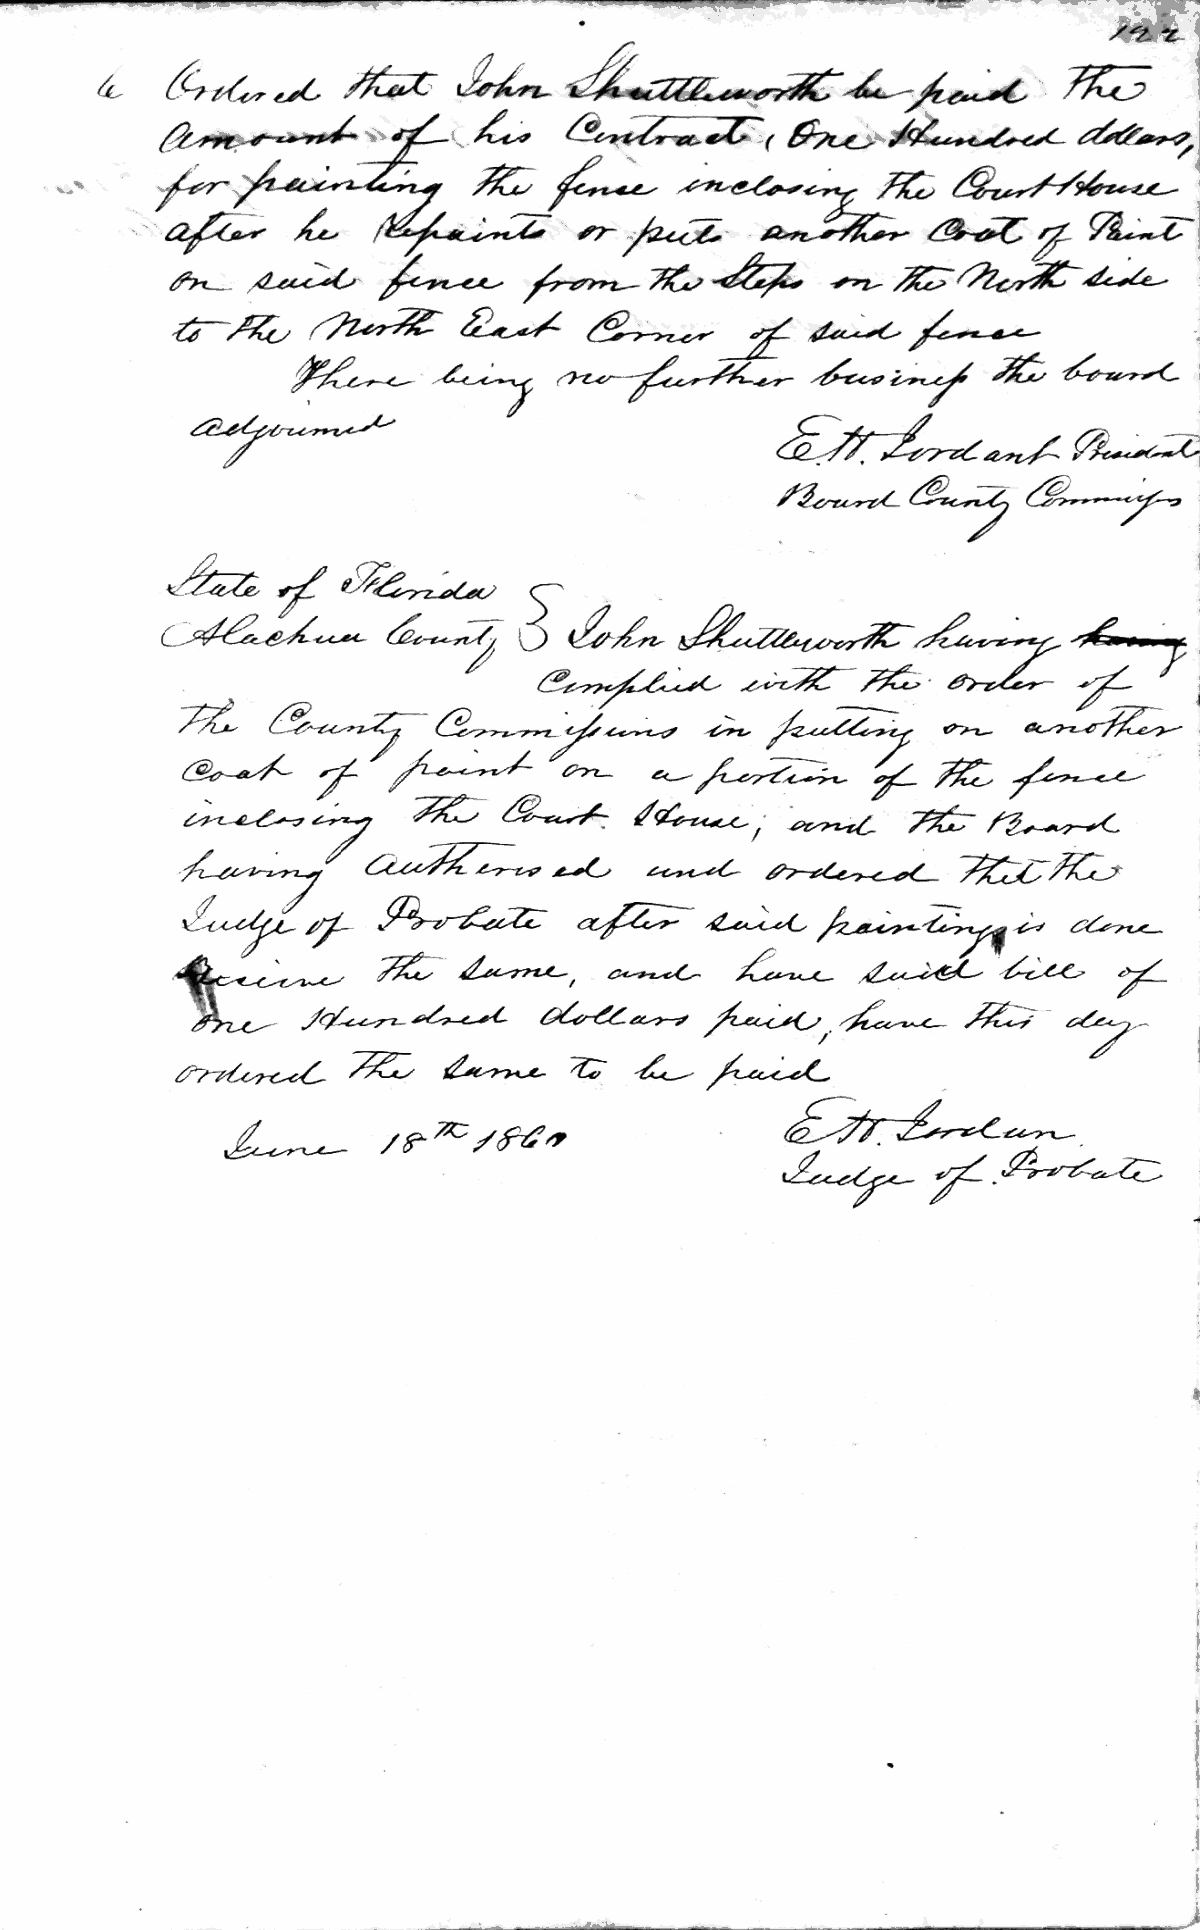 122
6 Ordered that John Shuttleworth be paid the
amount of his Contract, One Hundred dollars,
for painting the fence inclosing the Court House
after he repaints or puts another Coat of Paint
on said fence from the Steps on the North side
to the North East Corner of said fence
There being no further business the board
adjourned
E.H. Jordan President
Board County Commissrs
State of Florida
Alachua County } John Shuttleworth having having
Complied with the order of
the County Commissions in putting on another
Coat of paint on a portion of the fence
inclosing the Court House, and the Board
having Authorised and ordered that the
Judge of Probate after said painting is done
Receive the same, and have said bill of
one Hundred dollars paid, have this day
ordered the same to be paid
June 18th 1860
E H. Jordan
Judge of Probate